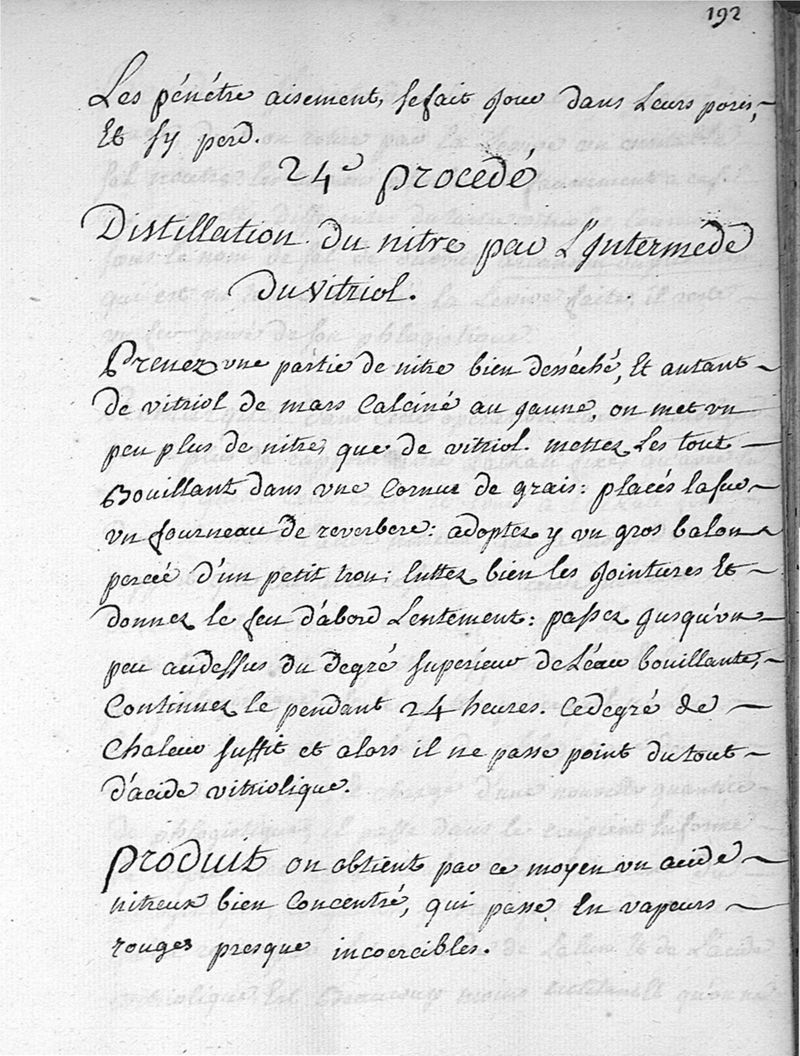 192
Les pénétre aisement, se fait jour dans Leurs pores,
Et s'y perd.
24e procedé
Distillation du nitre par L'Intermede
du vitriol.
Prenez une partie de nitre bien desséché, Et autant
de vitriol de mars Calciné au jaune, on met un
peu plus de nitre, que de vitriol. mettez Les tout
Bouillant dans une Cornue de grais: placés la sur
un fourneau de reverbere: adoptez y un gros balon
percée d'un petit trou; luttez bien les jointures Et
donnez le feu d'abord Lentement: passez jusqu'un
peu audessus du degré superieur de L'eau bouillante,
Continuez le pendant 24 heures. Ce degré de
Chaleur suffit et alors il ne passe point du tout
d'acide vitriolique.
Produit on obtient par ce moyen un acide
nitreux bien Concentré, qui passe En vapeurs
rouges presque incoercibles.